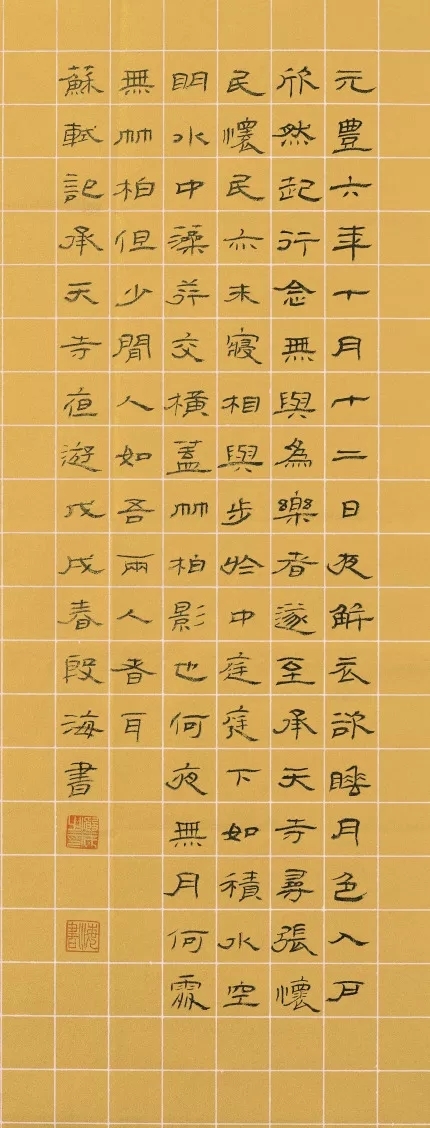 元豐六年十月十二日夜解衣欲睡月色入戶
欣然起行念無與為樂者遂至承天寺尋張懷
民懷民亦未寢相與步於中庭庭下如積水空
明水中藻荇交橫蓋竹柏影也何夜無月何處
無竹柏但少閒人如吾兩人者耳
蘇軾記承天寺夜遊戊戌春段海書